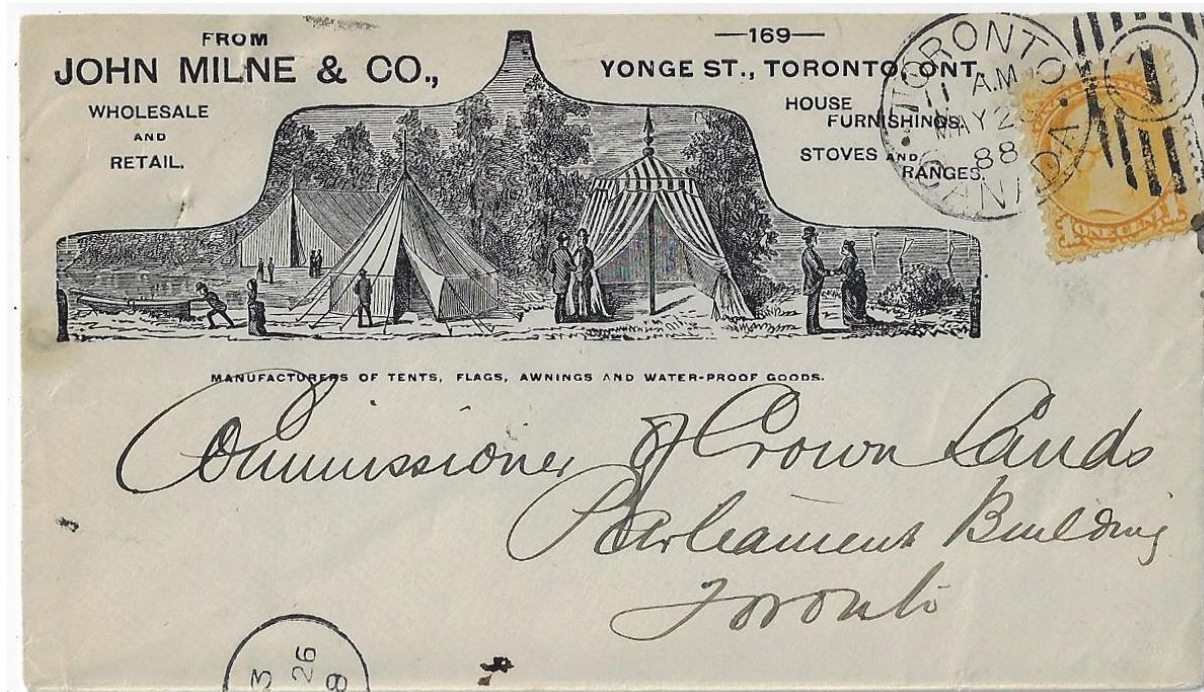 FROM
JOHN MILNE & CO.,
WHOLESALE
AND
RETAIL.
—169—
YONGE ST., TORONTO, ONT.
HOUSE
FURNISHINGS.
STOVES AND
RANGES.
TORONTO
11 A.M
MAY 26
88
CANADA
1
ONE CENT
MANUFACTURERS OF TENTS, FLAGS, AWNINGS AND WATER-PROOF GOODS.
Commissioner of Crown Lands
Parliament Building
Toronto
3
26
8